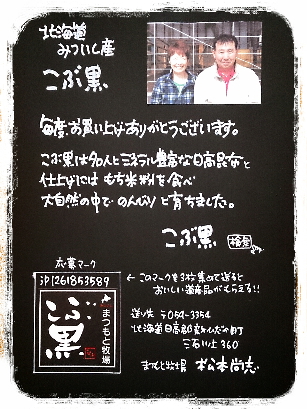 北海道
みついし産
こぶ黒
毎度お買い上げありがとうございます。
こぶ黒は名人とミネラル豊富な日高昆布と
仕上げにはもち米粉を食べ
大自然の中でのんびりと育ちました。
こぶ黒
応募マーク
JP1261853589
こぶ黒
まつもと牧場
← このマークを3枚集めて送ると
おいしい道産品がもらえる!!
送り先 〒059-3354
北海道日高郡新ひだか町
三石川上360
まつもと牧場 松本尚志